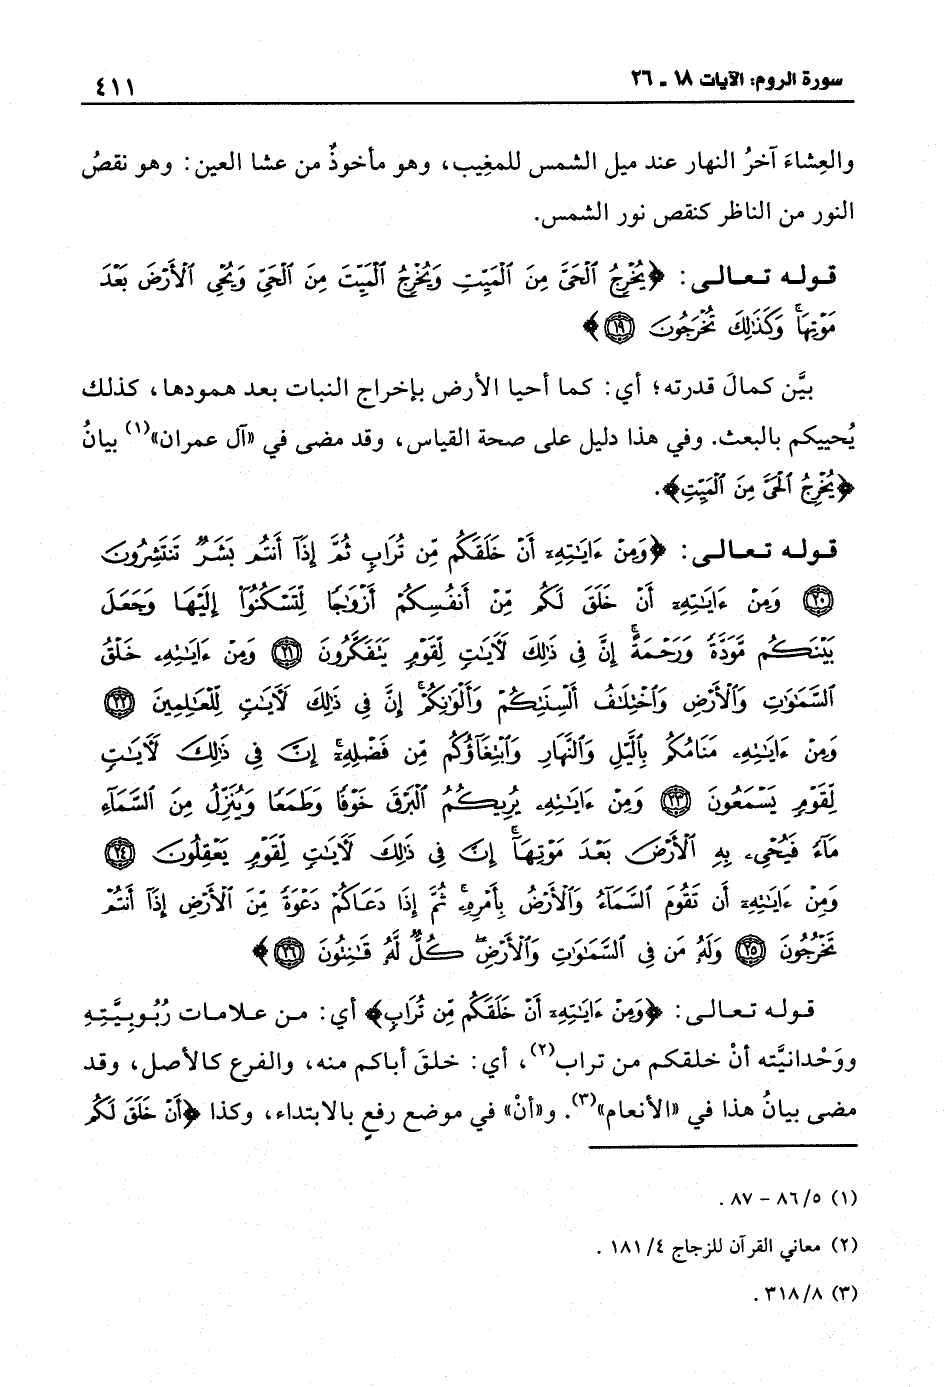 سورة الروم: الآيات ١٨ - ٢٦
٤١١
والعِشاءَ آخرُ النهار عند ميل الشمس للمغِيب، وهو مأخوذٌ من عشا العين: وهو نقصُ
النور من الناظر كنقص نور الشمس.
قوله تعالى: ﴿يُخْرِجُ ٱلْحَىَّ مِنَ ٱلْمَيِّتِ وَيُخْرِجُ ٱلْمَيِّتَ مِنَ ٱلْحَىِّ وَيُحْىِ ٱلْأَرْضَ بَعْدَ
مَوْتِهَا ۚ وَكَذَٰلِكَ تُخْرَجُونَ ﴿١٩﴾﴾
بيَّن كمالَ قدرته؛ أي: كما أحيا الأرض بإخراج النبات بعد همودها، كذلك
يُحييكم بالبعث. وفي هذا دليل على صحة القياس، وقد مضى في «آل عمران»(١) بيانُ
﴿يُخْرِجُ ٱلْحَىَّ مِنَ ٱلْمَيِّتِ﴾.
قوله تعالى: ﴿وَمِنْ ءَايَٰتِهِۦٓ أَنْ خَلَقَكُم مِّن تُرَابٍ ثُمَّ إِذَآ أَنتُم بَشَرٌ تَنتَشِرُونَ
﴿٢٠﴾ وَمِنْ ءَايَٰتِهِۦٓ أَنْ خَلَقَ لَكُم مِّنْ أَنفُسِكُمْ أَزْوَٰجًا لِّتَسْكُنُوٓا۟ إِلَيْهَا وَجَعَلَ
بَيْنَكُم مَّوَدَّةً وَرَحْمَةً ۚ إِنَّ فِى ذَٰلِكَ لَءَايَٰتٍ لِّقَوْمٍ يَتَفَكَّرُونَ ﴿٢١﴾ وَمِنْ ءَايَٰتِهِۦ خَلْقُ
ٱلسَّمَٰوَٰتِ وَٱلْأَرْضِ وَٱخْتِلَٰفُ أَلْسِنَتِكُمْ وَأَلْوَٰنِكُمْ ۚ إِنَّ فِى ذَٰلِكَ لَءَايَٰتٍ لِّلْعَٰلِمِينَ ﴿٢٢﴾
وَمِنْ ءَايَٰتِهِۦ مَنَامُكُم بِٱلَّيْلِ وَٱلنَّهَارِ وَٱبْتِغَآؤُكُم مِّن فَضْلِهِۦٓ ۚ إِنَّ فِى ذَٰلِكَ لَءَايَٰتٍ
لِّقَوْمٍ يَسْمَعُونَ ﴿٢٣﴾ وَمِنْ ءَايَٰتِهِۦ يُرِيكُمُ ٱلْبَرْقَ خَوْفًا وَطَمَعًا وَيُنَزِّلُ مِنَ ٱلسَّمَآءِ
مَآءً فَيُحْىِۦ بِهِ ٱلْأَرْضَ بَعْدَ مَوْتِهَآ ۚ إِنَّ فِى ذَٰلِكَ لَءَايَٰتٍ لِّقَوْمٍ يَعْقِلُونَ ﴿٢٤﴾
وَمِنْ ءَايَٰتِهِۦٓ أَن تَقُومَ ٱلسَّمَآءُ وَٱلْأَرْضُ بِأَمْرِهِۦ ۚ ثُمَّ إِذَا دَعَاكُمْ دَعْوَةً مِّنَ ٱلْأَرْضِ إِذَآ أَنتُمْ
تَخْرُجُونَ ﴿٢٥﴾ وَلَهُۥ مَن فِى ٱلسَّمَٰوَٰتِ وَٱلْأَرْضِ ۖ كُلٌّ لَّهُۥ قَٰنِتُونَ ﴿٢٦﴾﴾
قوله تعالى: ﴿وَمِنْ ءَايَٰتِهِۦٓ أَنْ خَلَقَكُم مِّن تُرَابٍ﴾ أي: من علامات رُبُوبيَّتِهِ
ووَحْدانيَّته أنْ خلقكم من تراب(٢)، أي: خلقَ أباكم منه، والفرع كالأصل، وقد
مضى بيانُ هذا في «الأنعام»(٣). و«أنْ» في موضع رفعٍ بالابتداء، وكذا ﴿أَنْ خَلَقَ لَكُم
(١) ٥/ ٨٦ - ٨٧ .
(٢) معاني القرآن للزجاج ٤/ ١٨١ .
(٣) ٨/ ٣١٨ .